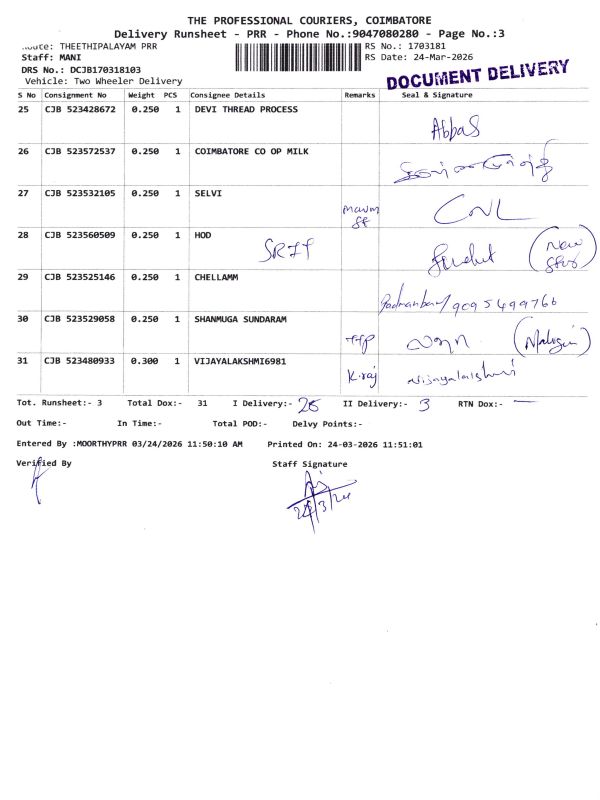 THE PROFESSIONAL COURIERS, COIMBATORE
Delivery Runsheet - PRR - Phone No.:9047080280 - Page No.:3
Route: THEETHIPALAYAM PRR
RS No.: 1703181
Staff: MANI
RS Date: 24-Mar-2026
DRS No.: DCJB170318103
Vehicle: Two Wheeler Delivery
DOCUMENT DELIVERY
S No Consignment No Weight PCS Consignee Details Remarks Seal & Signature
25 CJB 523428672 0.250 1 DEVI THREAD PROCESS Abbas
26 CJB 523572537 0.250 1 COIMBATORE CO OP MILK
27 CJB 523532105 0.250 1 SELVI
28 CJB 523560509 0.250 1 HOD
29 CJB 523525146 0.250 1 CHELLAMM 9095499766
30 CJB 523529058 0.250 1 SHANMUGA SUNDARAM
31 CJB 523480933 0.300 1 VIJAYALAKSHMI6981 K.raj Vijayalakshmi
Tot. Runsheet:- 3 Total Dox:- 31 I Delivery:- 28 II Delivery:- 3 RTN Dox:- —
Out Time:- In Time:- Total POD:- Delvy Points:-
Entered By :MOORTHYPRR 03/24/2026 11:50:10 AM Printed On: 24-03-2026 11:51:01
Verified By Staff Signature